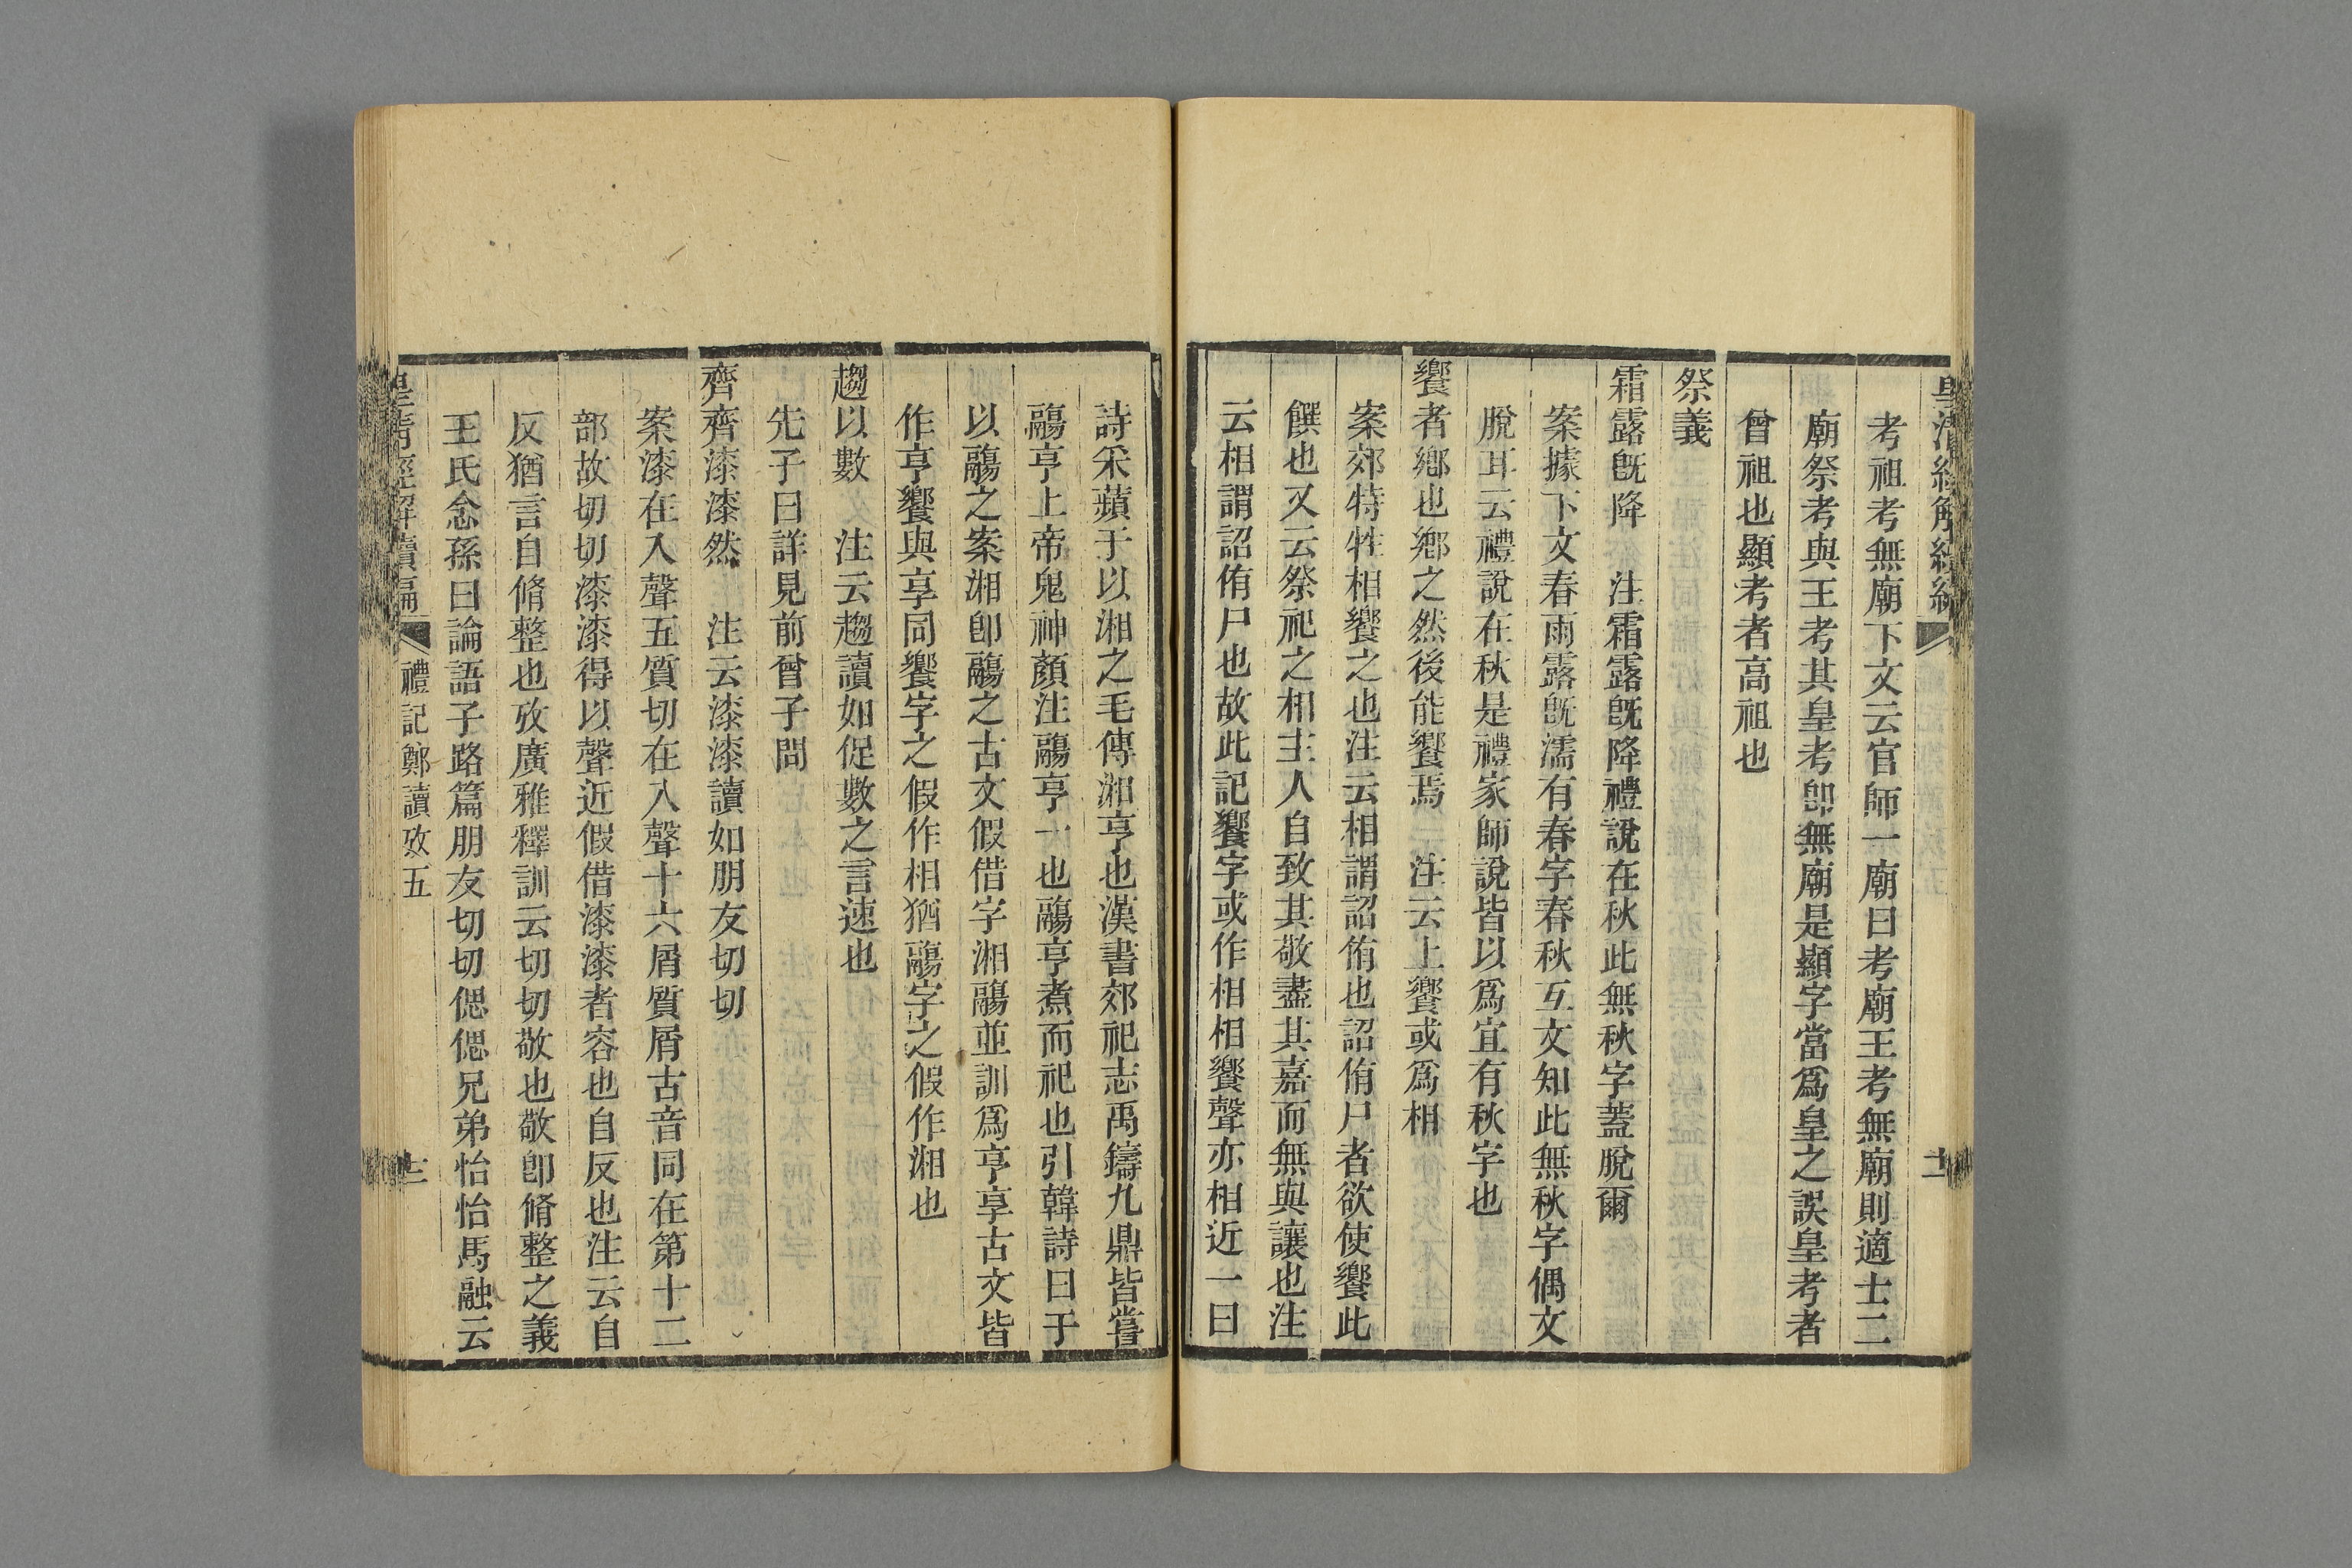 皇清經解續編
十二
考祖考無廟下文云官師一廟曰考廟王考無廟則適士二
廟祭考與王考其皇考卽無廟是顯字當爲皇之誤皇考者
曾祖也顯考者高祖也
祭義
霜露旣降 注霜露旣降禮說在秋此無秋字蓋脫爾
案據下文春雨露旣濡有春字春秋互文知此無秋字偶文
脫耳云禮說在秋是禮家師說皆以爲宜有秋字也
饗者鄉也鄉之然後能饗焉 注云上饗或爲相
案郊特牲相饗之也注云相謂詔侑也詔侑尸者欲使饗此
饌也又云祭祀之相主人自致其敬盡其嘉而無與讓也注
云相謂詔侑尸也故此記饗字或作相相饗聲亦相近一曰
詩采蘋于以湘之毛傳湘亨也漢書郊祀志禹鑄九鼎皆嘗
鬺亨上帝鬼神顏注鬺亨一也鬺亨煮而祀也引韓詩曰于
以鬺之案湘卽鬺之古文假借字湘鬺並訓爲亨享古文皆
作亨饗與享同饗字之假作相猶鬺字之假作湘也
趨以數 注云趨讀如促數之言速也
先子曰詳見前曾子問
齊齊漆漆然 注云漆漆讀如朋友切切
案漆在入聲五質切在入聲十六屑質屑古音同在第十二
部故切切漆漆得以聲近假借漆漆者容也自反也注云自
反猶言自脩整也攷廣雅釋訓云切切敬也敬卽脩整之義
王氏念孫曰論語子路篇朋友切切偲偲兄弟怡怡馬融云
皇清經解續編 禮記鄭讀攷五
十三